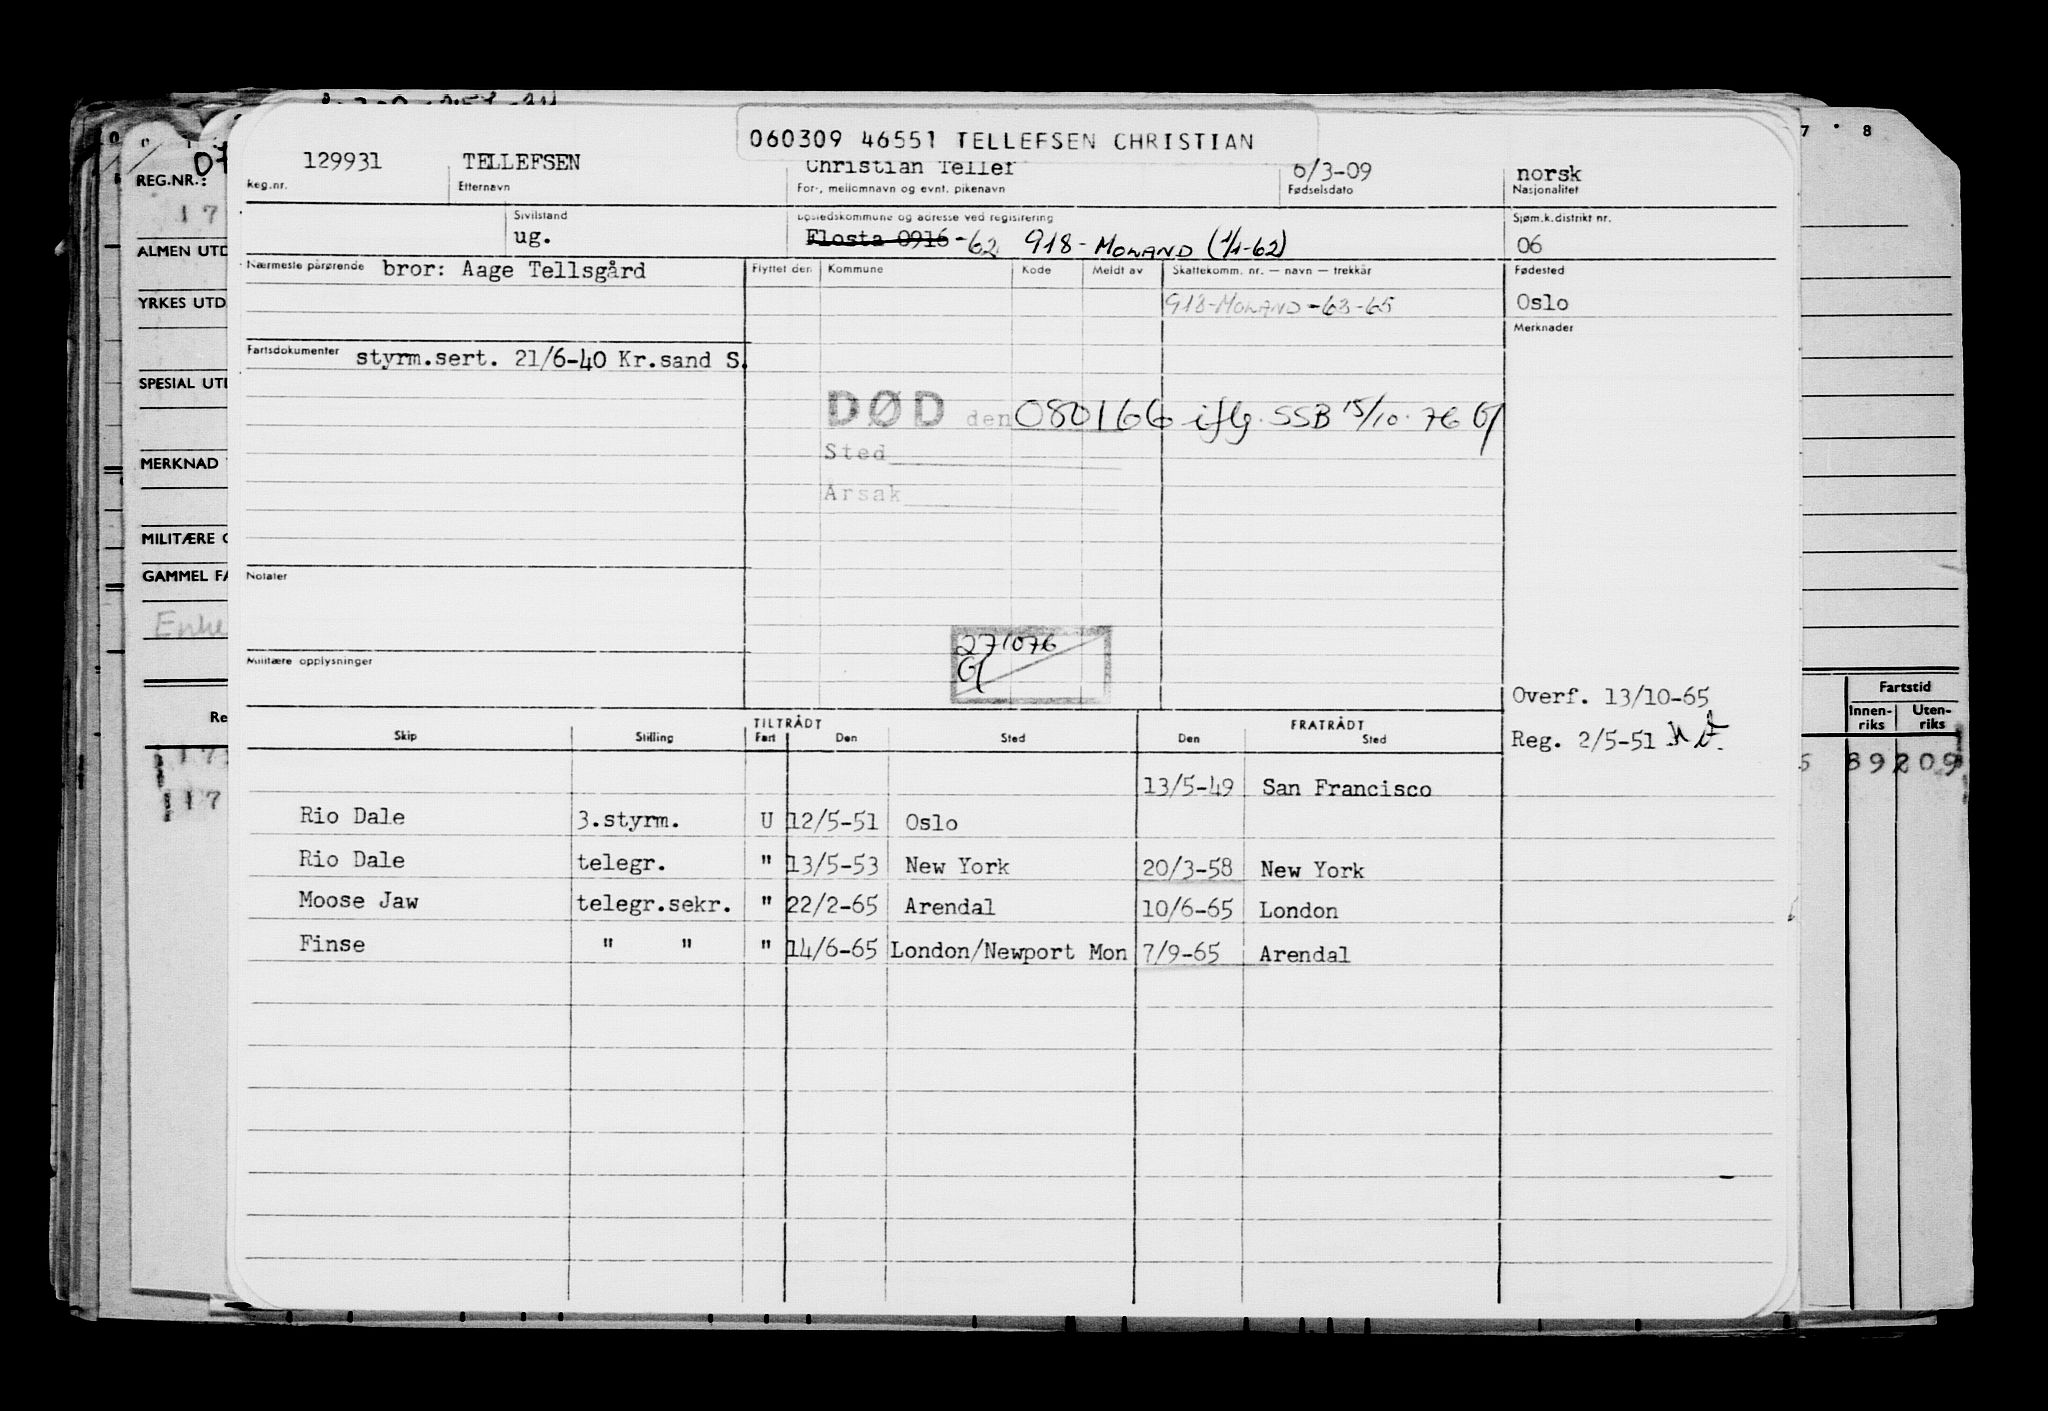 060309 46551 TELLEFSEN CHRISTIAN
129931 TELLEFSEN Christian Teller 6/3-09 norsk
Reg.nr. Etternavn For-, mellomnavn og evnt. pikenavn Fødselsdato Nasjonalitet
Sivilstand Bostedskommune og adresse ved registrering Sjøm.k.distrikt nr.
ug. Flosta 0916 -62 918- MOLAND (1/1-62) 06
Nærmeste pårørende bror: Aage Tellsgård Flyttet den Kommune Kode Meldt av Skattekomm. nr. — navn — trekkår Fødested
918-MOLAND-63-65 Oslo
Merknader
Fartsdokumenter styrm.sert. 21/6-40 Kr.sand S.
DØD den 080166 iflg. SSB 15/10-76
Sted
Årsak
Notater
271076
Militære opplysninger
Overf. 13/10-65
TILTRÅDT FRATRÅDT
Skip Stilling Fart Den Sted Den Sted
Reg. 2/5-51
13/5-49 San Francisco
Rio Dale 3.styrm. U 12/5-51 Oslo
Rio Dale telegr. " 13/5-53 New York 20/3-58 New York
Moose Jaw telegr.sekr. " 22/2-65 Arendal 10/6-65 London
Finse " " " 14/6-65 London/Newport Mon 7/9-65 Arendal
REG.NR.:
17
ALMEN UTD
YRKES UTD
SPESIAL UTD
MERKNAD
MILITÆRE
GAMMEL
Enke
Re
17
17
7 8
Fartstid
Innen-riks Uten-riks
89 209